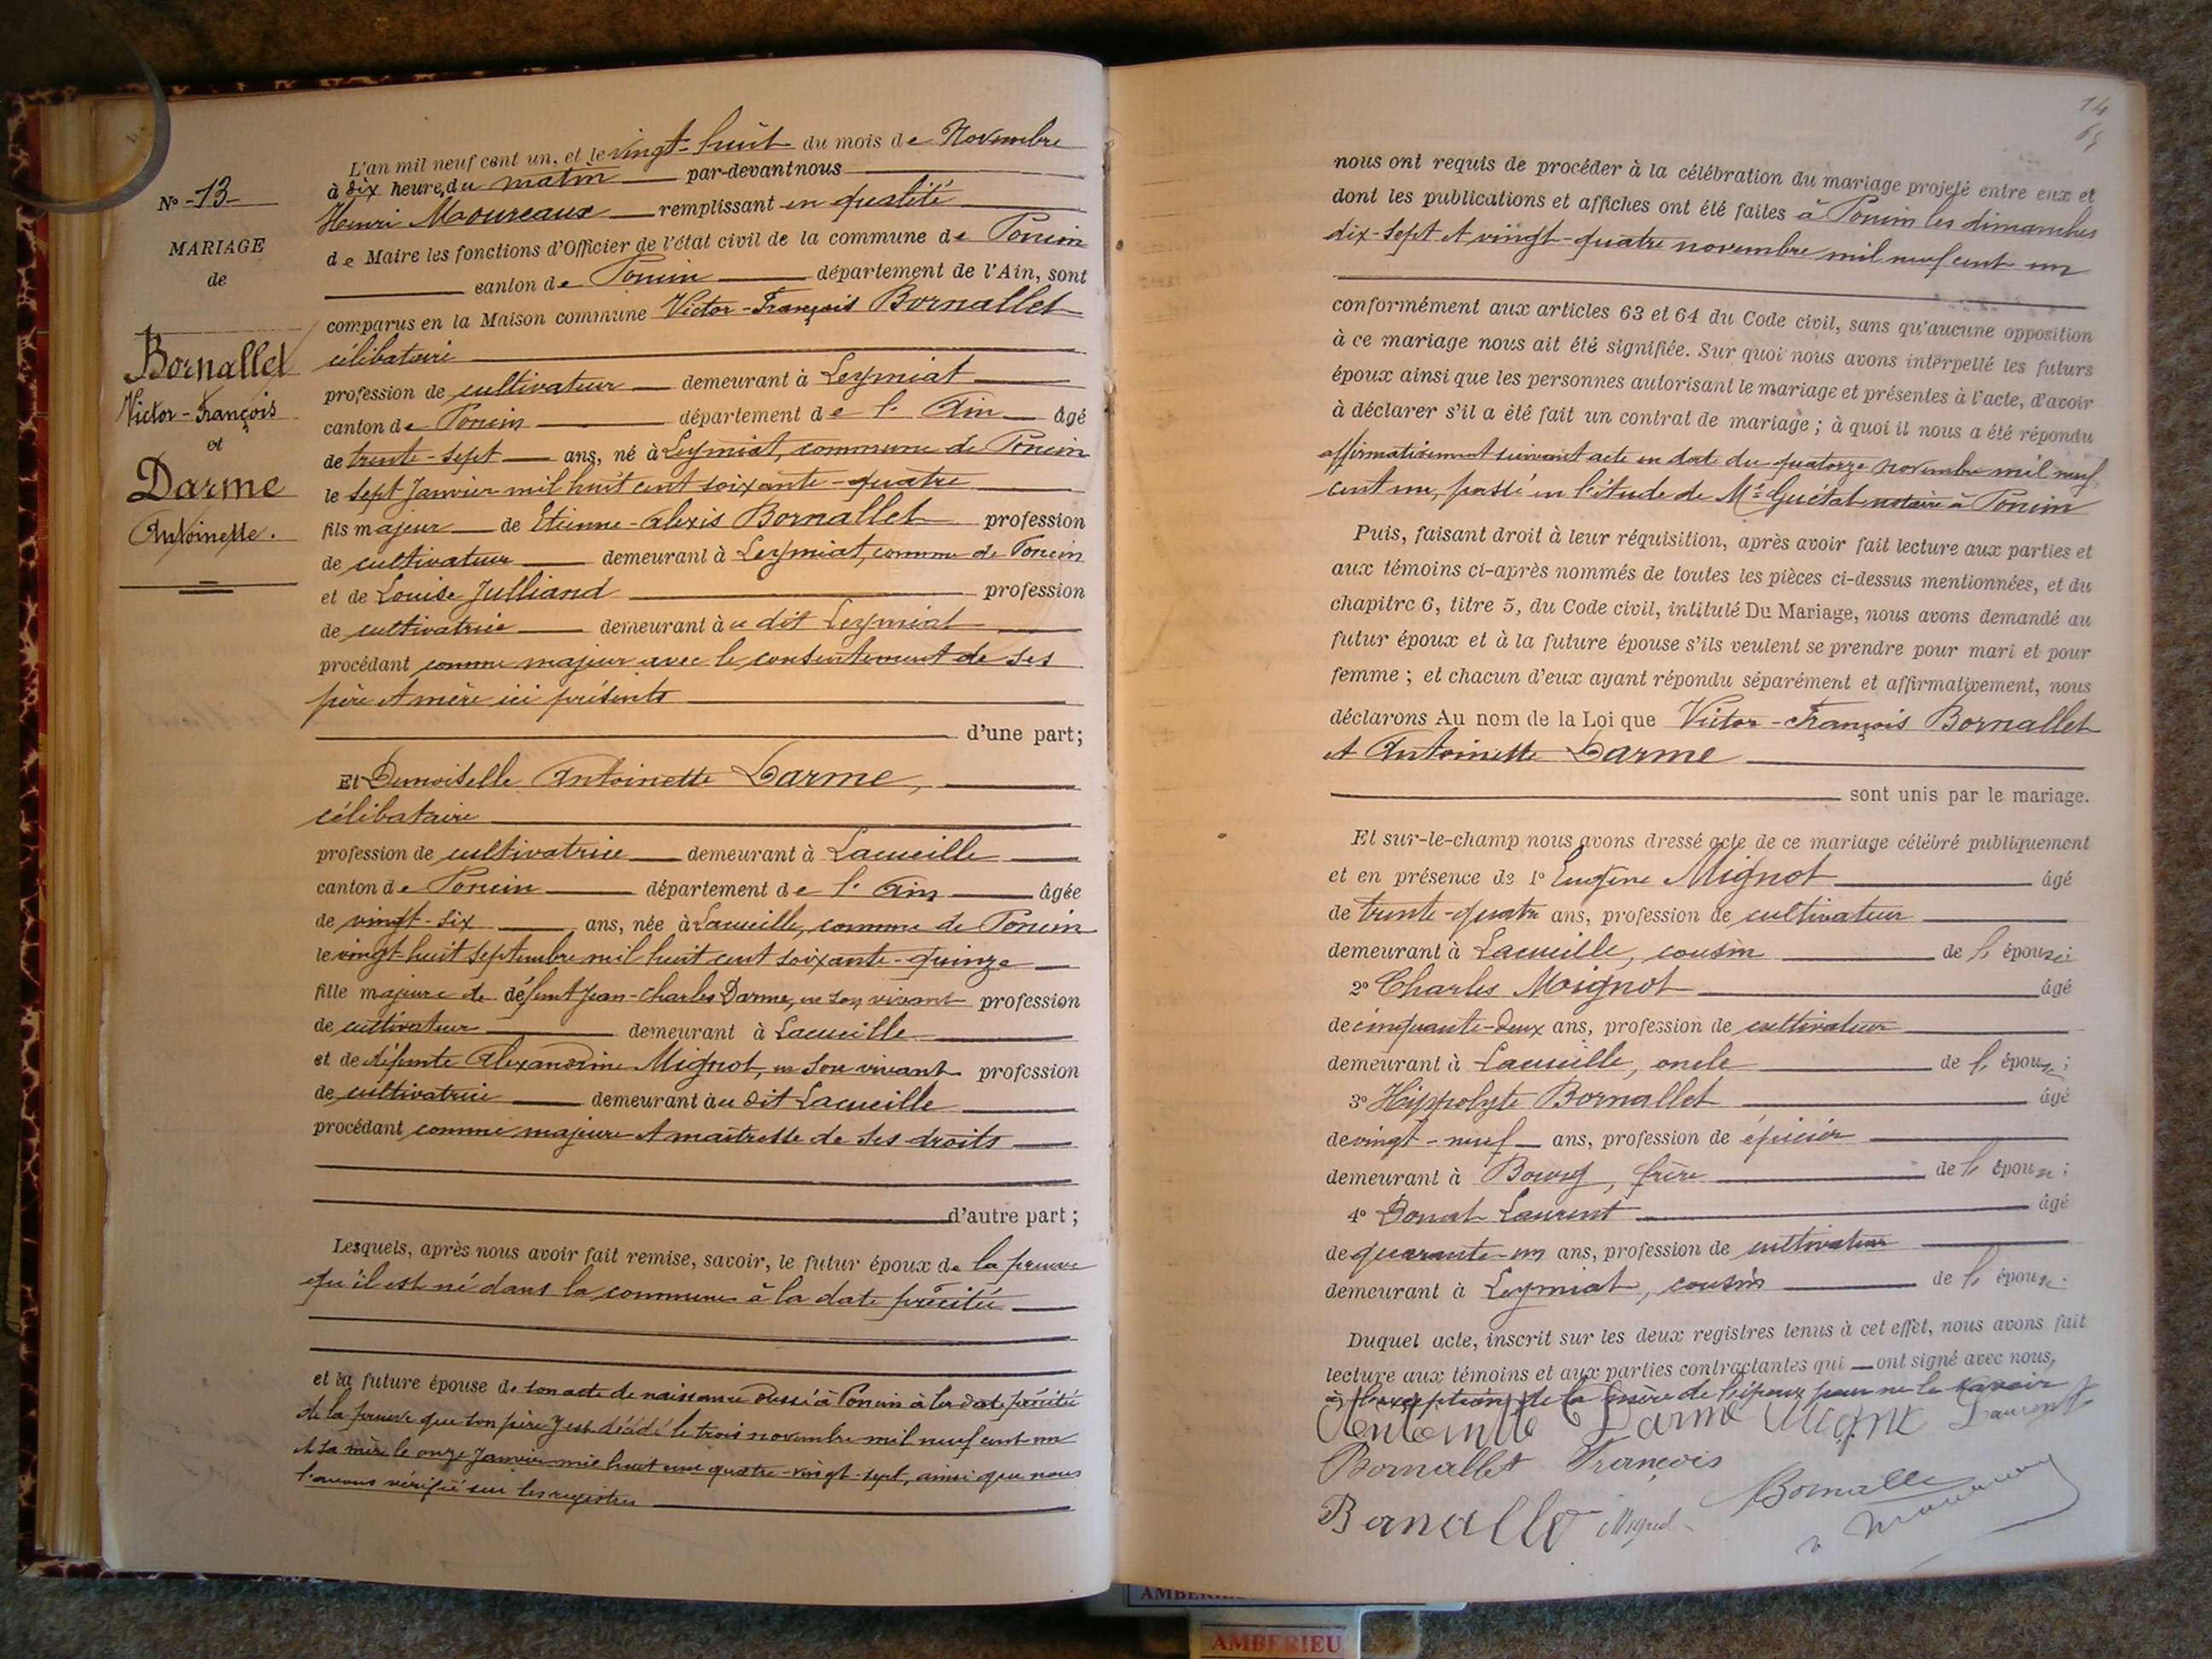 L'an mil neuf cent un, et le vingt-huit du mois de Novembre
à dix heures du matin par-devant nous
Henri Moureaux remplissant en qualité
de Maire les fonctions d'Officier de l'état civil de la commune de Poncin
canton de Poncin département de l'Ain, sont
comparus en la Maison commune Victor-François Bornallet
célibataire
profession de cultivateur demeurant à Leymiat
canton de Poncin département de l'Ain âgé
de trente-sept ans, né à Leymiat, commune de Poncin
le sept Janvier mil huit cent soixante-quatre
fils majeur de Etienne-Alexis Bornallet profession
de cultivateur demeurant à Leymiat, commune de Poncin
et de Louise Julliand profession
de cultivatrice demeurant au dit Leymiat
procédant comme majeur avec le consentement de ses
père et mère ici présents
d'une part;
Et Demoiselle Antoinette Darme,
célibataire
profession de cultivatrice demeurant à Lacueille
canton de Poncin département de l'Ain âgée
de vingt-six ans, née à Lacueille, commune de Poncin
le vingt-huit septembre mil huit cent soixante-quinze
fille majeure de défunt Jean-Charles Darme, en son vivant profession
de cultivateur demeurant à Lacueille
et de défunte Alexandrine Mignot, en son vivant profession
de cultivatrice demeurant au dit Lacueille
procédant comme majeure et maîtresse de ses droits
d'autre part;
Lesquels, après nous avoir fait remise, savoir, le futur époux de la preuve
qu'il est né dans la commune à la date précitée
et la future épouse de son acte de naissance dressé à Poncin à la date précitée
de la preuve que son père y est décédé le trois novembre mil neuf cent un
et sa mère le onze Janvier mil huit cent quatre-vingt-sept, ainsi que nous
l'avons vérifié sur les registres
N° 13
MARIAGE
de
Bornallet
Victor-François
et
Darme
Antoinette.
14
65
nous ont requis de procéder à la célébration du mariage projeté entre eux et
dont les publications et affiches ont été faites à Poncin les dimanches
dix-sept et vingt-quatre novembre mil neuf cent un
conformément aux articles 63 et 64 du Code civil, sans qu'aucune opposition
à ce mariage nous ait été signifiée. Sur quoi nous avons interpellé les futurs
époux ainsi que les personnes autorisant le mariage et présentes à l'acte, d'avoir
à déclarer s'il a été fait un contrat de mariage; à quoi il nous a été répondu
affirmativement suivant acte en date du quatorze novembre mil neuf
cent un, passé en l'étude de Me Guétat notaire à Poncin
Puis, faisant droit à leur réquisition, après avoir fait lecture aux parties et
aux témoins ci-après nommés de toutes les pièces ci-dessus mentionnées, et du
chapitre 6, titre 5, du Code civil, intitulé Du Mariage, nous avons demandé au
futur époux et à la future épouse s'ils veulent se prendre pour mari et pour
femme; et chacun d'eux ayant répondu séparément et affirmativement, nous
déclarons Au nom de la Loi que Victor-François Bornallet
et Antoinette Darme
sont unis par le mariage.
Et sur-le-champ nous avons dressé acte de ce mariage célébré publiquement
et en présence de 1° Eugène Mignot âgé
de trente-quatre ans, profession de cultivateur
demeurant à Lacueille, cousin de l'épouse;
2° Charles Mignot âgé
de cinquante-deux ans, profession de cultivateur
demeurant à Lacueille, oncle de l'épouse;
3° Hippolyte Bornallet âgé
de vingt-neuf ans, profession de épicier
demeurant à Bourg, frère de l'époux;
4° Donat Laurent âgé
de quarante-un ans, profession de cultivateur
demeurant à Leymiat, cousin de l'époux.
Duquel acte, inscrit sur les deux registres tenus à cet effet, nous avons fait
lecture aux témoins et aux parties contractantes qui ont signé avec nous,
à l'exception de la mère de l'époux pour ne le savoir
Antoinette Darme Mignot Laurent
Bornallet François
Bornallet Mignot Bornallet
AMBERIEU